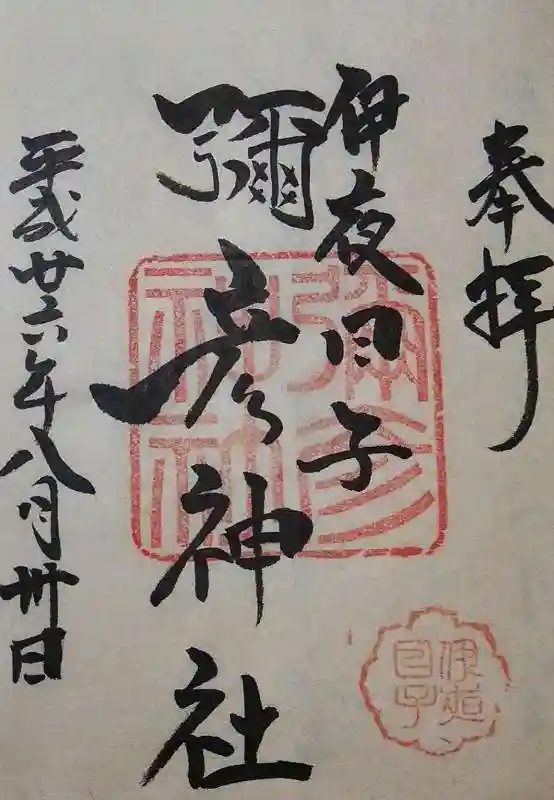 奉拝
伊夜日子
彌彦神社
平成廿六年八月卅日
彌彦
神社